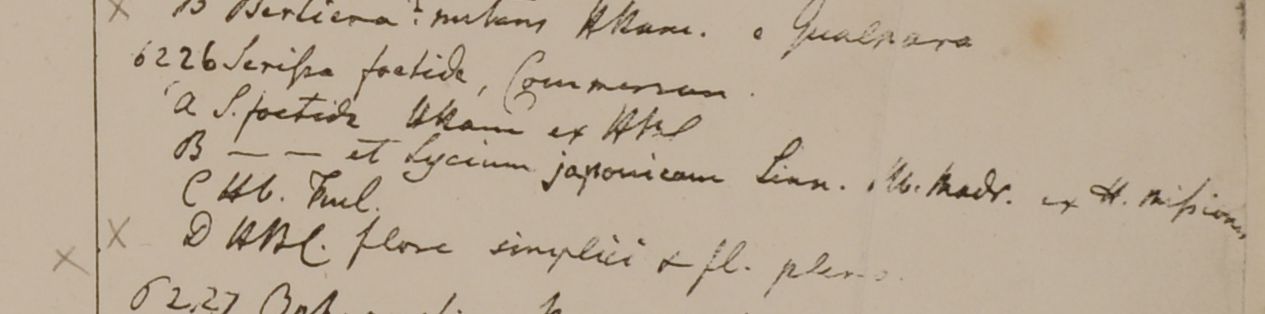 B Bertiera? nutans HHam. e Gualpara
6226 Serissa foetida, Commerson.
A S. foetida HHam ex HBC
B — — et Lycium japonicum Linn. Hb. Madr. ex H. missionis
C Hb. Finl.
D HBC. flore simplici & fl. pleno.
6227